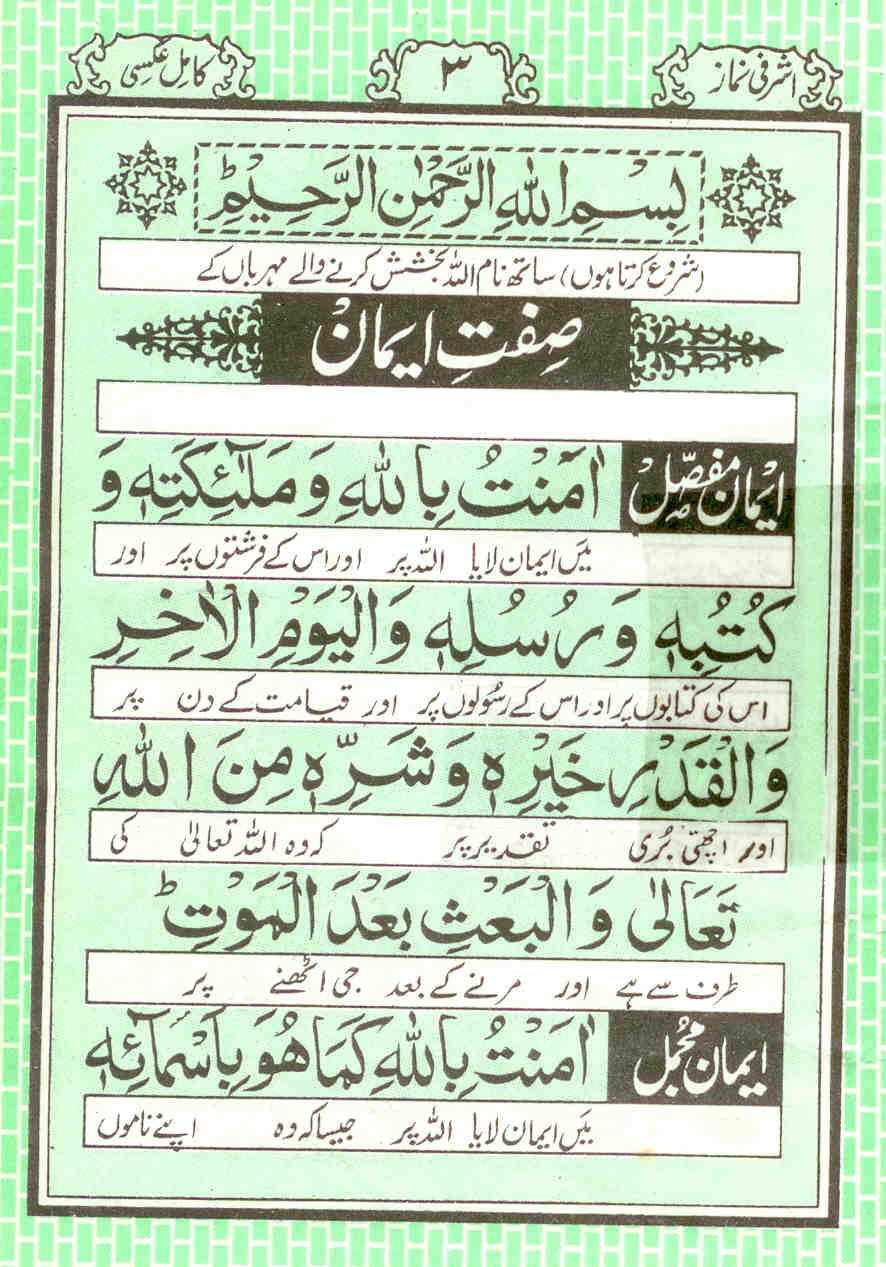 اشرفی نماز ۳ کامل عکسی
بِسْمِ اللهِ الرَّحْمٰنِ الرَّحِيْمِ ط
(شروع کرتا ہوں) ساتھ نام اللہ بخشش کرنے والے مہرباں کے
صِفتِ ایمان
ایمان مفصّل اٰمَنْتُ بِاللهِ وَ مَلٰٓئِكَتِهٖ وَ
میں ایمان لایا اللہ پر اور اس کے فرشتوں پر اور
كُتُبِهٖ وَ رُسُلِهٖ وَالْيَوْمِ الْاٰخِرِ
اس کی کتابوں پر اور اس کے رسُولوں پر اور قیامت کے دن پر
وَالْقَدْرِ خَيْرِهٖ وَ شَرِّهٖ مِنَ اللهِ
اور اچھّی بُری تقدیر پر کہ وہ اللہ تعالیٰ کی
تَعَالٰى وَ الْبَعْثِ بَعْدَ الْمَوْتِ ط
طرف سے ہے اور مرنے کے بعد جی اٹھنے پر
ایمان مُجمل اٰمَنْتُ بِاللهِ كَمَا هُوَ بِاَسْمَآئِهٖ
میں ایمان لایا اللہ پر جیسا کہ وہ اپنے ناموں